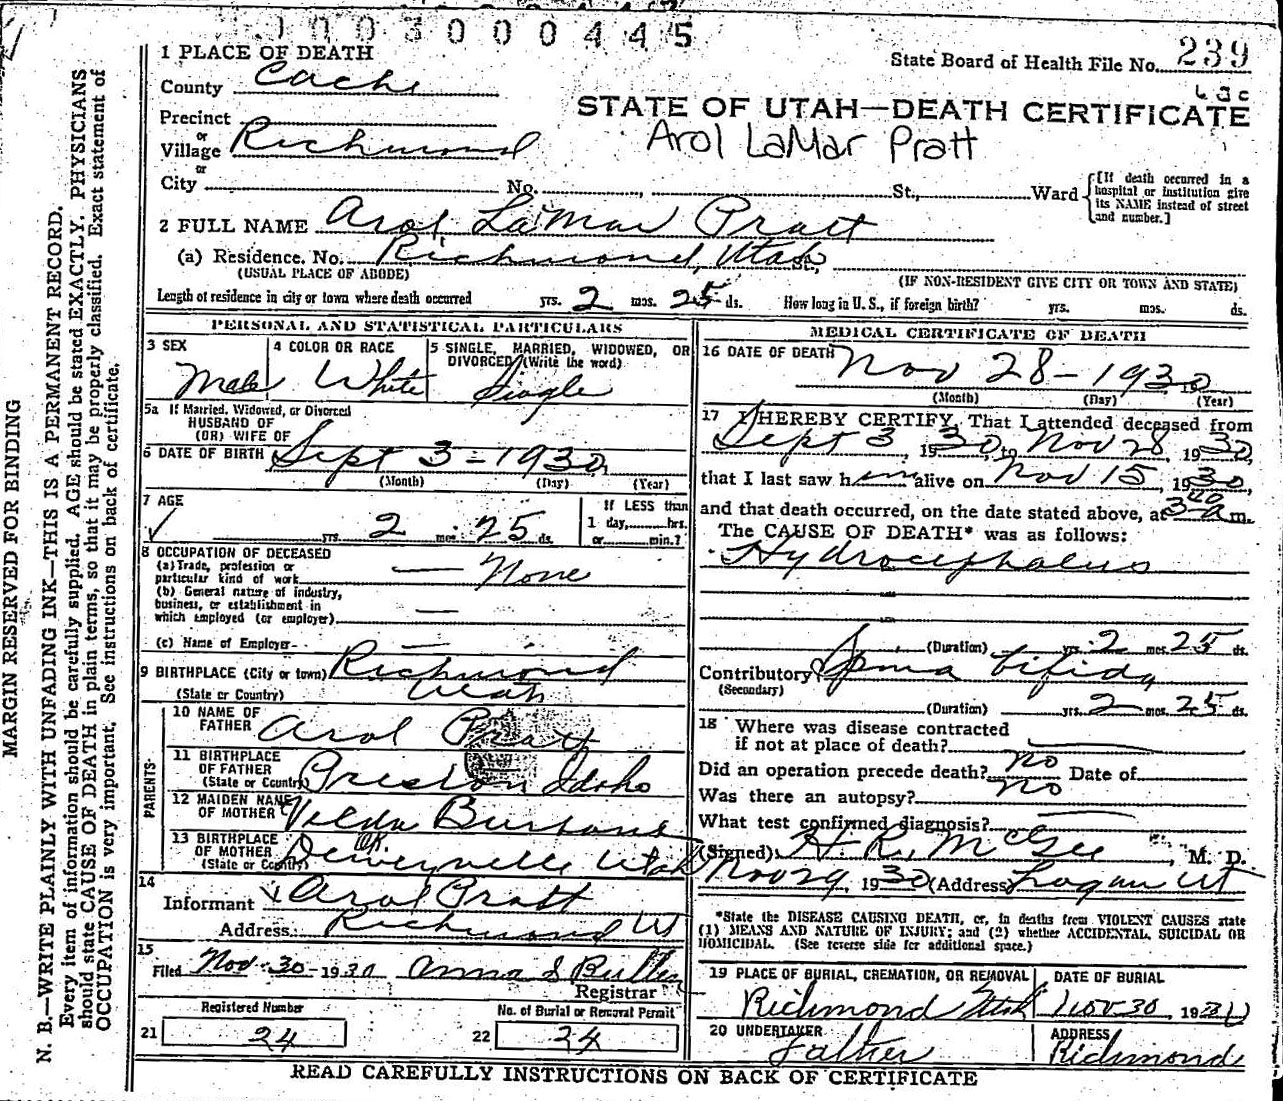 0003000445
1 PLACE OF DEATH
State Board of Health File No. 239
County Cache
STATE OF UTAH—DEATH CERTIFICATE
Precinct
Arol LaMar Pratt
or
Village Richmond
or
City No. St., Ward
{[If death occurred in a hospital or institution give its NAME instead of street and number.]
2 FULL NAME Arol LaMar Pratt
(a) Residence. No. Richmond, Utah St.,
(USUAL PLACE OF ABODE) (IF NON-RESIDENT GIVE CITY OR TOWN AND STATE)
Length of residence in city or town where death occurred yrs. 2 mos. 25 ds. How long in U. S., if foreign birth? yrs. mos. ds.
PERSONAL AND STATISTICAL PARTICULARS
3 SEX 4 COLOR OR RACE 5 SINGLE, MARRIED, WIDOWED, OR
DIVORCED (Write the word)
Male White Single
5a If Married, Widowed, or Divorced
HUSBAND OF
(OR) WIFE OF
6 DATE OF BIRTH Sept 3-1930
(Month) (Day) (Year)
7 AGE If LESS than
yrs. 2 mos. 25 ds. 1 day, hrs.
or min.?
8 OCCUPATION OF DECEASED
(a) Trade, profession or
particular kind of work — None
(b) General nature of industry,
business, or establishment in
which employed (or employer) —
(c) Name of Employer- —
9 BIRTHPLACE (City or town) Richmond
(State or Country) Utah
PARENTS
10 NAME OF
FATHER Arol Pratt
11 BIRTHPLACE
OF FATHER
(State or Country) Preston Idaho
12 MAIDEN NAME
OF MOTHER Velda
13 BIRTHPLACE
OF MOTHER
(State or Country) Deweyville Utah
14
Informant Arol Pratt
Address Richmond Ut
15
Filed Nov-30-1930 Anna S
Registrar
Registered Number No. of Burial or Removal Permit
21 24 22 24
MEDICAL CERTIFICATE OF DEATH
16 DATE OF DEATH Nov 28-1930
(Month) (Day) (Year)
17 I HEREBY CERTIFY, That I attended deceased from
Sept 3, 1930, to Nov 28, 1930,
that I last saw him alive on Nov 15, 1930,
and that death occurred, on the date stated above, at 3 a m.
The CAUSE OF DEATH* was as follows:
Hydrocephalus
(Duration) yrs. 2 mos. 25 ds.
Contributory Spina bifida
(Secondary)
(Duration) yrs. 2 mos. 25 ds.
18 Where was disease contracted
if not at place of death?
Did an operation precede death? no Date of
Was there an autopsy? no
What test confirmed diagnosis?
(Signed) H. R. McGee, M. D.
Nov 29, 1930 (Address) Logan Ut
*State the DISEASE CAUSING DEATH, or, in deaths from VIOLENT CAUSES state
(1) MEANS AND NATURE OF INJURY; and (2) whether ACCIDENTAL, SUICIDAL OR
HOMICIDAL. (See reverse side for additional space.)
19 PLACE OF BURIAL, CREMATION, OR REMOVAL DATE OF BURIAL
Richmond Utah Nov 30, 1930
20 UNDERTAKER ADDRESS
Father Richmond
READ CAREFULLY INSTRUCTIONS ON BACK OF CERTIFICATE
MARGIN RESERVED FOR BINDING
N. B.—WRITE PLAINLY WITH UNFADING INK—THIS IS A PERMANENT RECORD.
Every item of information should be carefully supplied. AGE should be stated EXACTLY. PHYSICIANS
should state CAUSE OF DEATH in plain terms, so that it may be properly classified. Exact statement of
OCCUPATION is very important. See instructions on back of certificate.